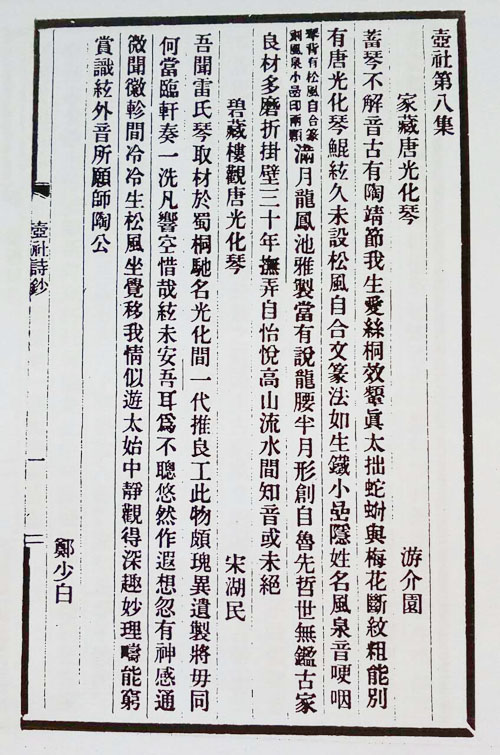 壺社第八集
家藏唐光化琴 游介園
蓄琴不解音古有陶靖節我生愛絲桐效顰眞太拙蛇蚹與梅花斷紋粗能別
有唐光化琴鯤絃久未設松風自合文篆法如生鐵小嵒隱姓名風泉音哽咽
琴背有松風自合篆
刻風泉小嵒印兩顆
滿月龍鳳池雅製當有說龍腰半月形創自魯先哲世無鑑古家
良材多磨折掛壁三十年撫弄自怡悅高山流水間知音或未絕
碧藏樓觀唐光化琴 宋湖民
吾聞雷氏琴取材於蜀桐馳名光化間一代推良工此物頗瑰異遺製將毋同
何當臨軒奏一洗凡響空惜哉絃未安吾耳爲不聰悠然作遐想忽有神感通
微聞徽軫間冷冷生松風坐覺移我情似遊太始中靜觀得深趣妙理疇能窮
賞識絃外音所願師陶公
鄭少白
壺社詩鈔 一 二